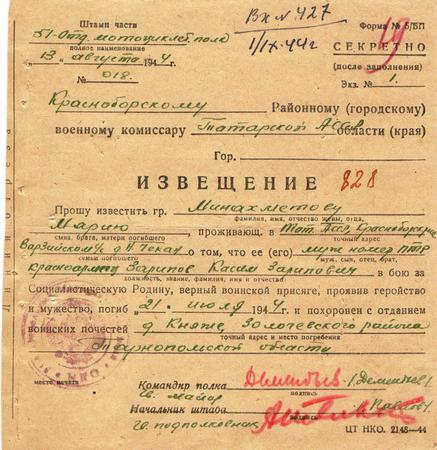 Штамп части
Вх № 427
Форма № Б/БП
51-Отд. мотоциклет. полк
полное наименование
1/IX-44г
СЕКРЕТНО
19
„13" августа 1944
(после заполнения)
№ 018.
Экз. № 1.
Красноборскому Районному (городскому)
военному комиссару Татарской АССР области (края)
Гор.
ИЗВЕЩЕНИЕ 828
Прошу известить гр. Минахметову
фамилия, имя, отчество жены, отца,
Марию проживающ. в Тат. АССР, Красноборский
сына, брата, матери погибшего
точный адрес
Варзийском с/с д. о том, что ее (его) муж номер ПТР
семьи погибшего
муж, сын, отец, брат,
красноармеец Зарипов Касим Зарипович в бою за
должность, звание, фамилия, имя и отчество
Социалистическую Родину, верный воинской присяге, проявив геройство
и мужество, погиб „21" июля 1944 г. и похоронен с отданием
воинских почестей д. Княже, Золочевского района
точный адрес и место погребения
Тарнопольской области
место печати
Командир полка Дементьев /Дементьев/
Гв. майор
подпись
Начальник штаба
Гв. подполковник
подпись
ЦТ НКО. 2148—44
Линия отреза